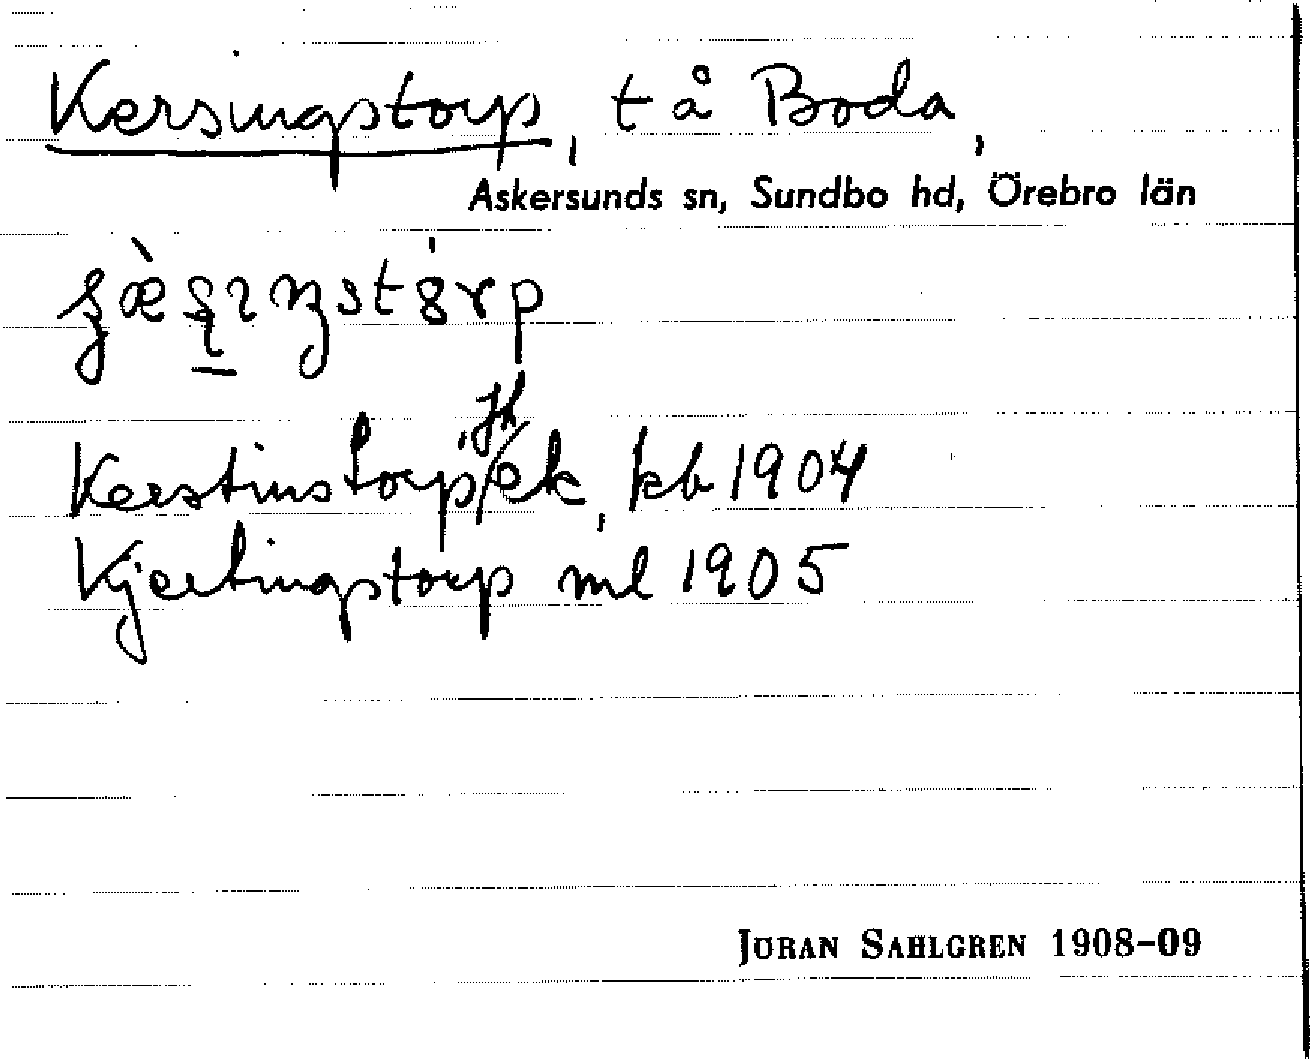 Kersingstorp, t å Boda,
Askersunds sn, Sundbo hd, Örebro län
Kerstinstorp, JK/ek, kb 1904
Kjertingstorp ml 1905
JÖRAN SAHLGREN 1908–09